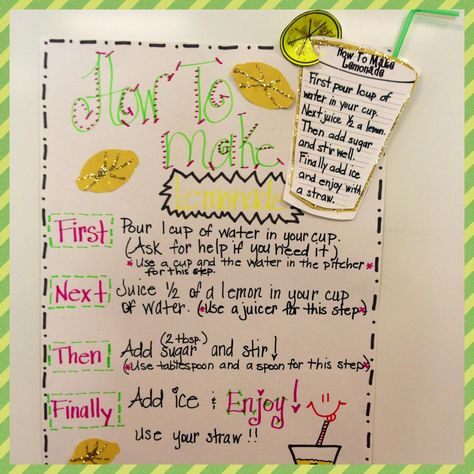 How To
make
Lemonade
First
Pour 1 cup of water in your cup.
(Ask for help if you need it)
*Use a cup and the water in the pitcher *
for this step.
Next
Juice 1/2 of a lemon in your cup
of water. (*Use a juicer for this step*)
Then
(2 tbsp)
Add sugar and stir↓
(*Use tablespoon and a spoon for this step*)
Finally
Add ice & Enjoy!
use your straw !!
How To Make
Lemonade
First pour 1 cup of
water in your cup.
Next juice 1/2 a lemon.
Then add sugar
and stir well.
Finally add ice
and enjoy with
a straw.